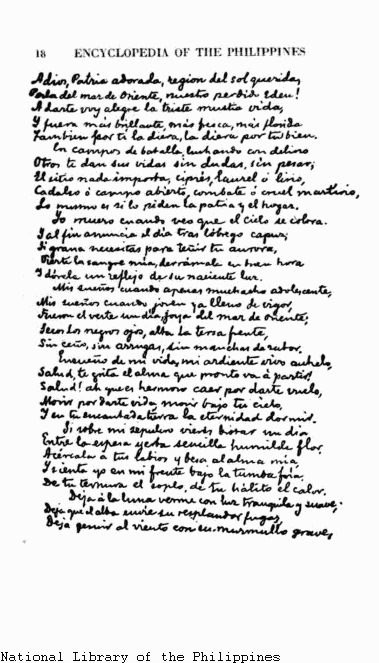 18 ENCYCLOPEDIA OF THE PHILIPPINES
Adios, Patria adorada, region del sol querida,
Perla del mar de Oriente, nuestro perdido Eden!
A darte voy alegre la triste mustia vida,
Y fuera más brillante, más fresca, más florida
Tambien por ti la diera, la diera por tu bien.
En campos de batalla, luchando con delirio
Otros te dan sus vidas sin dudas, sin pesar;
El sitio nada importa, ciprés, laurel ó lirio,
Cadalso ó campo abierto, combate ó cruel martirio,
Lo mismo es si lo piden la patria y el hogar.
Yo muero cuando veo que el cielo se colora.
Y al fin anuncia el dia tras lóbrego capuz;
Si grana necesitas para teñir tu aurora,
Vierte la sangre mia, derrámala en buen hora
Y dórela un reflejo de su naciente luz.
Mis sueños cuando apenas muchacho adolescente,
Mis sueños cuando joven ya lleno de vigor,
Fueron el verte un dia, joya del mar de oriente,
Secos los negros ojos, alta la tersa frente,
Sin ceño, sin arrugas, sin manchas de rubor.
Ensueño de mi vida, mi ardiente vivo anhelo,
Salud, te grita el alma que pronto va á partir!
Salud! ah que es hermoso caer por darte vuelo,
Morir por darte vida, morir bajo tu cielo,
Y en tu encantada tierra la eternidad dormir.
Si sobre mi sepulcro vieres brotar un dia
Entre la espesa yerba sencilla humilde flor,
Acércala a tus labios y besa al alma mia,
Y sienta yo en mi frente bajo la tumba fria,
De tu ternura el soplo, de tu hálito el calor.
Deja á la luna verme con luz tranquila y suave;
Deja que el alba envie su resplandor fugaz,
Deja gemir al viento con su murmullo grave,
National Library of the Philippines